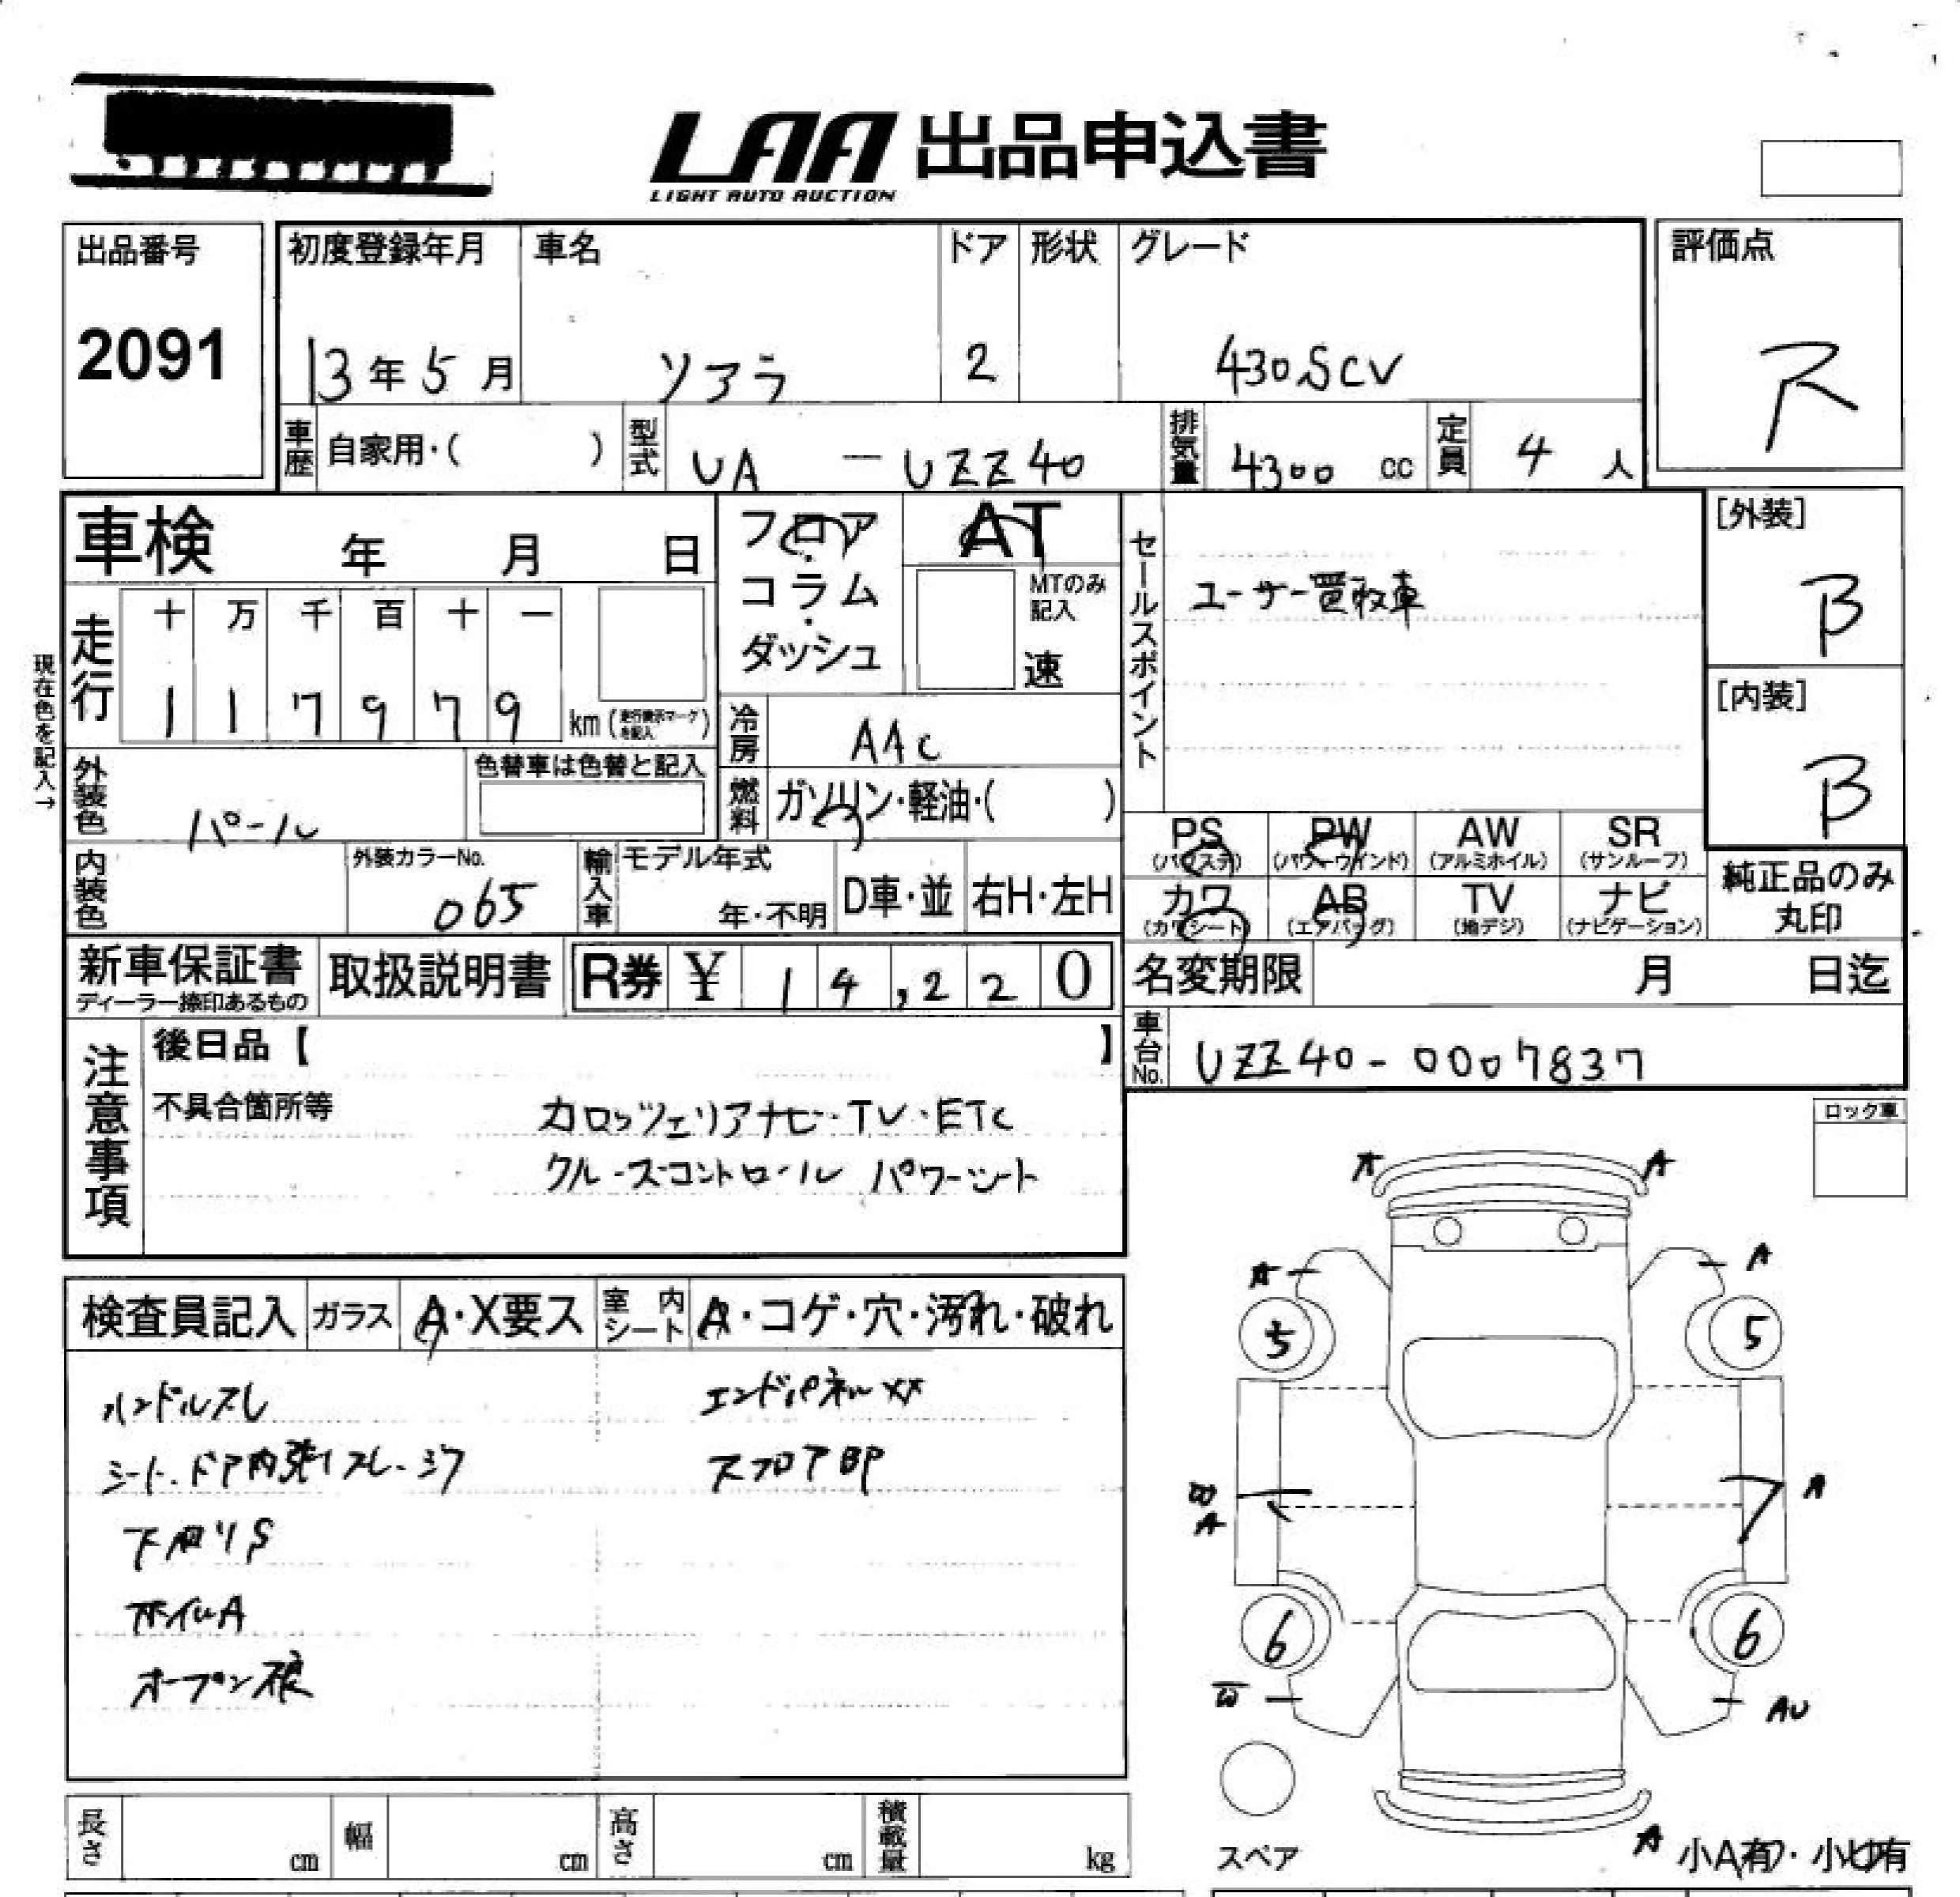 LAA 出品申込書
LIGHT AUTO AUCTION
出品番号
2091
初度登録年月
13年5月
車名
ソアラ
ドア
2
形状
グレード
430SCV
評価点
ス
車歴
自家用・( )
型式
UA — UZZ40
排気量
4300 cc
定員
4 人
車検 年 月 日
フロア・コラム・ダッシュ
AT
MTのみ
記入
速
セールスポイント
ユーザー買取車
[外装]
B
[内装]
B
現在色を記入→
走行
十 万 千 百 十 一
1 1 7 9 7 9 km (走行表示マークを記入)
冷房
AAC
燃料
ガソリン・軽油・( )
外装色
パール
色替車は色替と記入
内装色
外装カラーNo.
065
輸入車
モデル年式
年・不明
D車・並
右H・左H
PS
(パワステ)
PW
(パワーウインド)
AW
(アルミホイル)
SR
(サンルーフ)
カワ
(カワシート)
AB
(エアバッグ)
TV
(地デジ)
ナビ
(ナビゲーション)
純正品のみ
丸印
新車保証書
ディーラー捺印あるもの
取扱説明書
R券 ¥ 14,220
名変期限 月 日迄
車台No.
UZZ40-0007837
注意事項
後日品【 】
不具合箇所等
カロッツェリアナビ・TV・ETC
クルーズコントロール パワーシート
ロック車
検査員記入
ガラス
A・X要ス
室内シート
A・コゲ・穴・汚れ・破れ
ハンドルスレ
エンドパネルXX
シート、ドア内張りスレ、シワ
スフロアBP
下廻りS
ホイルA
オープン
A A
A A
5 5
B
A A
6 6
W AU
スペア
A 小A有・小U有
長さ cm
幅 cm
高さ cm
積載量 kg